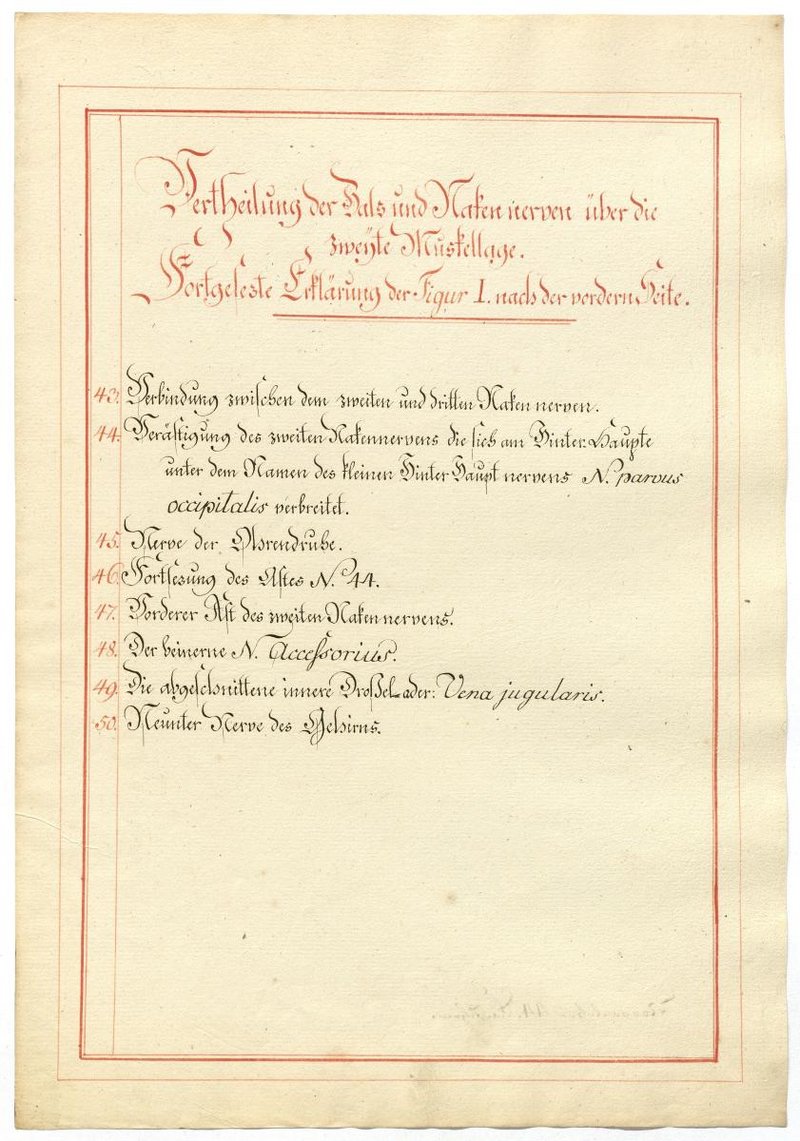 Vertheilung der Hals und Naken nerven über die
zweÿte Muskellage.
Fortgesezte Erklärung der Figur I. nach der vordern Seite.
43. Verbindung zwischen dem zweiten und dritten Naken nerven.
44. Verästigung des zweiten Nakennervens die sich am Hinter-Haupte
unter dem Namen des kleinen Hinter Haupt nervens N. parvus
occipitalis verbreitet.
45. Nerve der Ohrendruhe.
46. Fortsezung des Astes N.º 44.
47. Vorderer Ast des zweiten Nakennervens.
48. Der beinerne N. Accessorius.
49. Die abgeschnittene innere Droßel-ader: Vena jugularis.
50. Neunter Nerve des Gehirns.